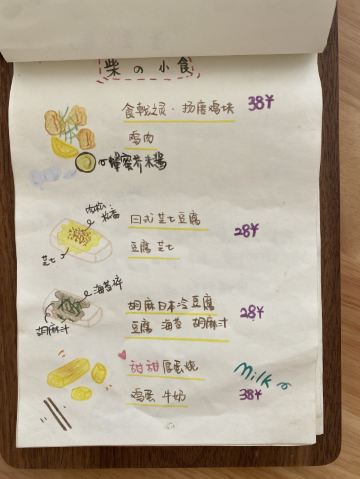 柴の小食
食戟之灵·扬唐鸡块 38¥
鸡肉
蜂蜜芥末酱
肉松
芝士
日式芝士豆腐 28¥
豆腐 芝士
海苔碎
胡麻汁
胡麻日本冷豆腐 28¥
豆腐 海苔 胡麻汁
甜甜厚蛋烧 Milk
鸡蛋 牛奶 38¥